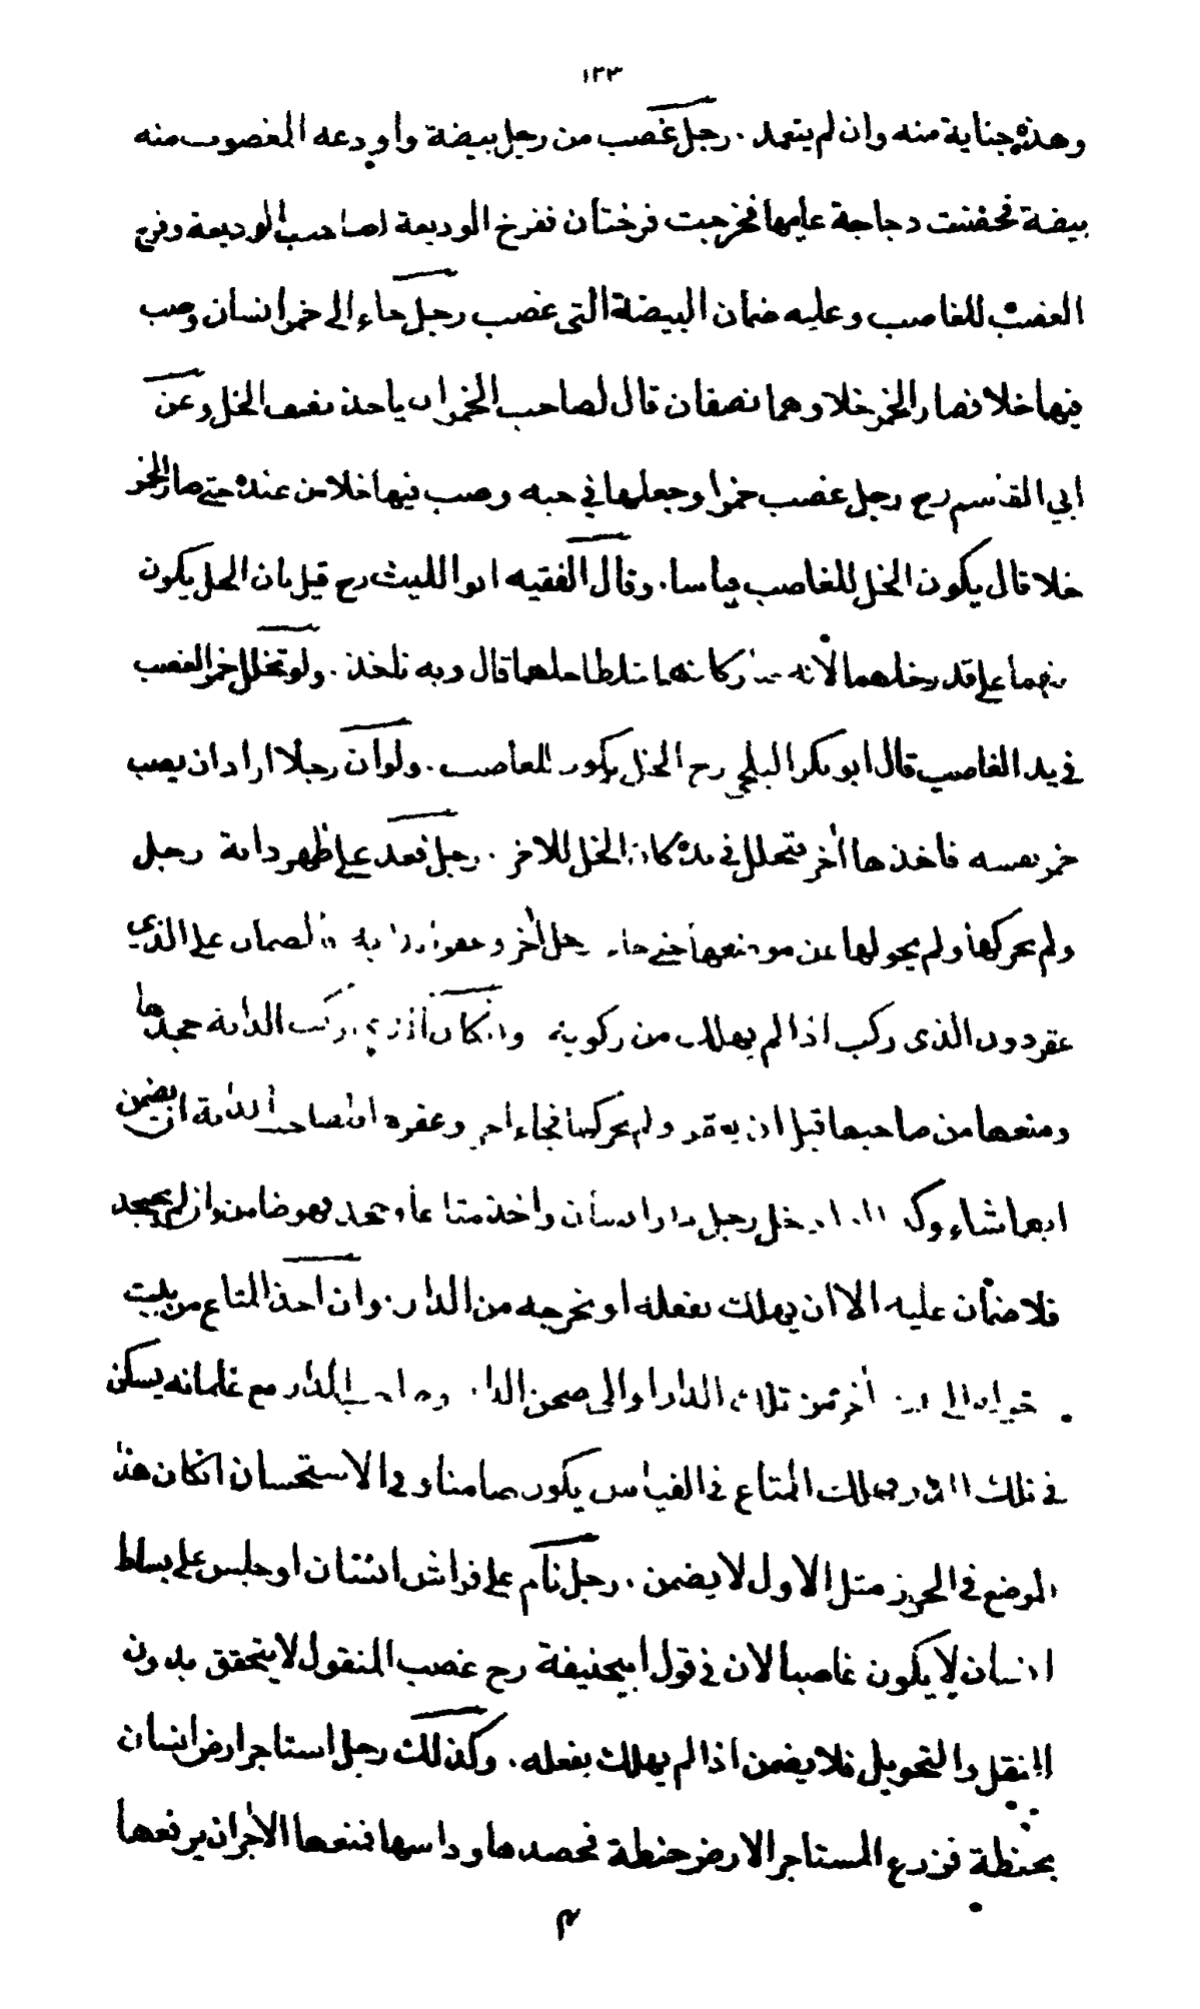 ١٢٣
وهذه جناية منه وان لم يتعمد . رجل غصب من رجل بيضة واودعه المغصوب منه
بيضة فحضنت دجاجة عليهما فخرجت فرختان ففرخ الوديعة لصاحب الوديعة وفرخ
الغصب للغاصب وعليه ضمان البيضة التى غصب رجل جاء الى خمر انسان وصب
فيها خلا فصار الخمر خلا وهما نصفان قال لصاحب الخمر ان ياخذ نصف الخل وعن
ابي القاسم رح رجل غصب خمرا وجعلها في حبه وصب فيها خلا من عنده حتى صار الخمر
خلا قال يكون الخل للغاصب قياسا . وقال الفقيه ابو الليث رح قيل بان الخل يكون
بينهما على قدر خلهما لانه كانهما خلطا خلهما قال وبه ناخذ . ولو تخلل خمر الغصب
في يد الغاصب قال ابو بكر البلخي رح الخل يكون للغاصب . ولو ان رجلا اراد ان يصب
خمر نفسه فاخذها اخر فتخلل في يده كان الخل للاخر . رجل قعد على ظهر دابة رجل
ولم يحركها ولم يحولها عن موضعها حتى جاء رجل اخر وعقر الدابة فالضمان على الذي
عقر دون الذى ركب اذا لم يهلك من ركوبه وان كان الذي ركب الدابة جحدها
ومنعها من صاحبها قبل ان يعقر ولم يحركها فجاء اخر وعقره ا لصاحب الدابة ان يضمن
ايهما شاء وكذا دخل رجل دار انسان واخذ متاعا وجحد فهو ضامن وان لم يجحد
فلا ضمان عليه الا ان يهلك بفعله او يخرجه من الدار . وان اخذ المتاع من بيت
اخر من تلك الدار او الى صحن الدار وصاحب الدار مع غلمانه يسكن
في تلك الدار فهلك المتاع في القياس يكون ضامنا وفي الاستحسان ان كان هذا
الموضع في الحرز مثل الاول لا يضمن . رجل نام على فراش انسان او جلس على بساط
انسان لا يكون غاصبا لان في قول ابيحنيفة رح غصب المنقول لا يتحقق بدون
النقل والتحويل فلا يضمن اذا لم يهلك بفعله . وكذلك رجل استاجر ارض انسان
بحنطة فزرع المستاجر الارض حنطة فحصدها وداسها فمنعها الاجر ان يرفعها